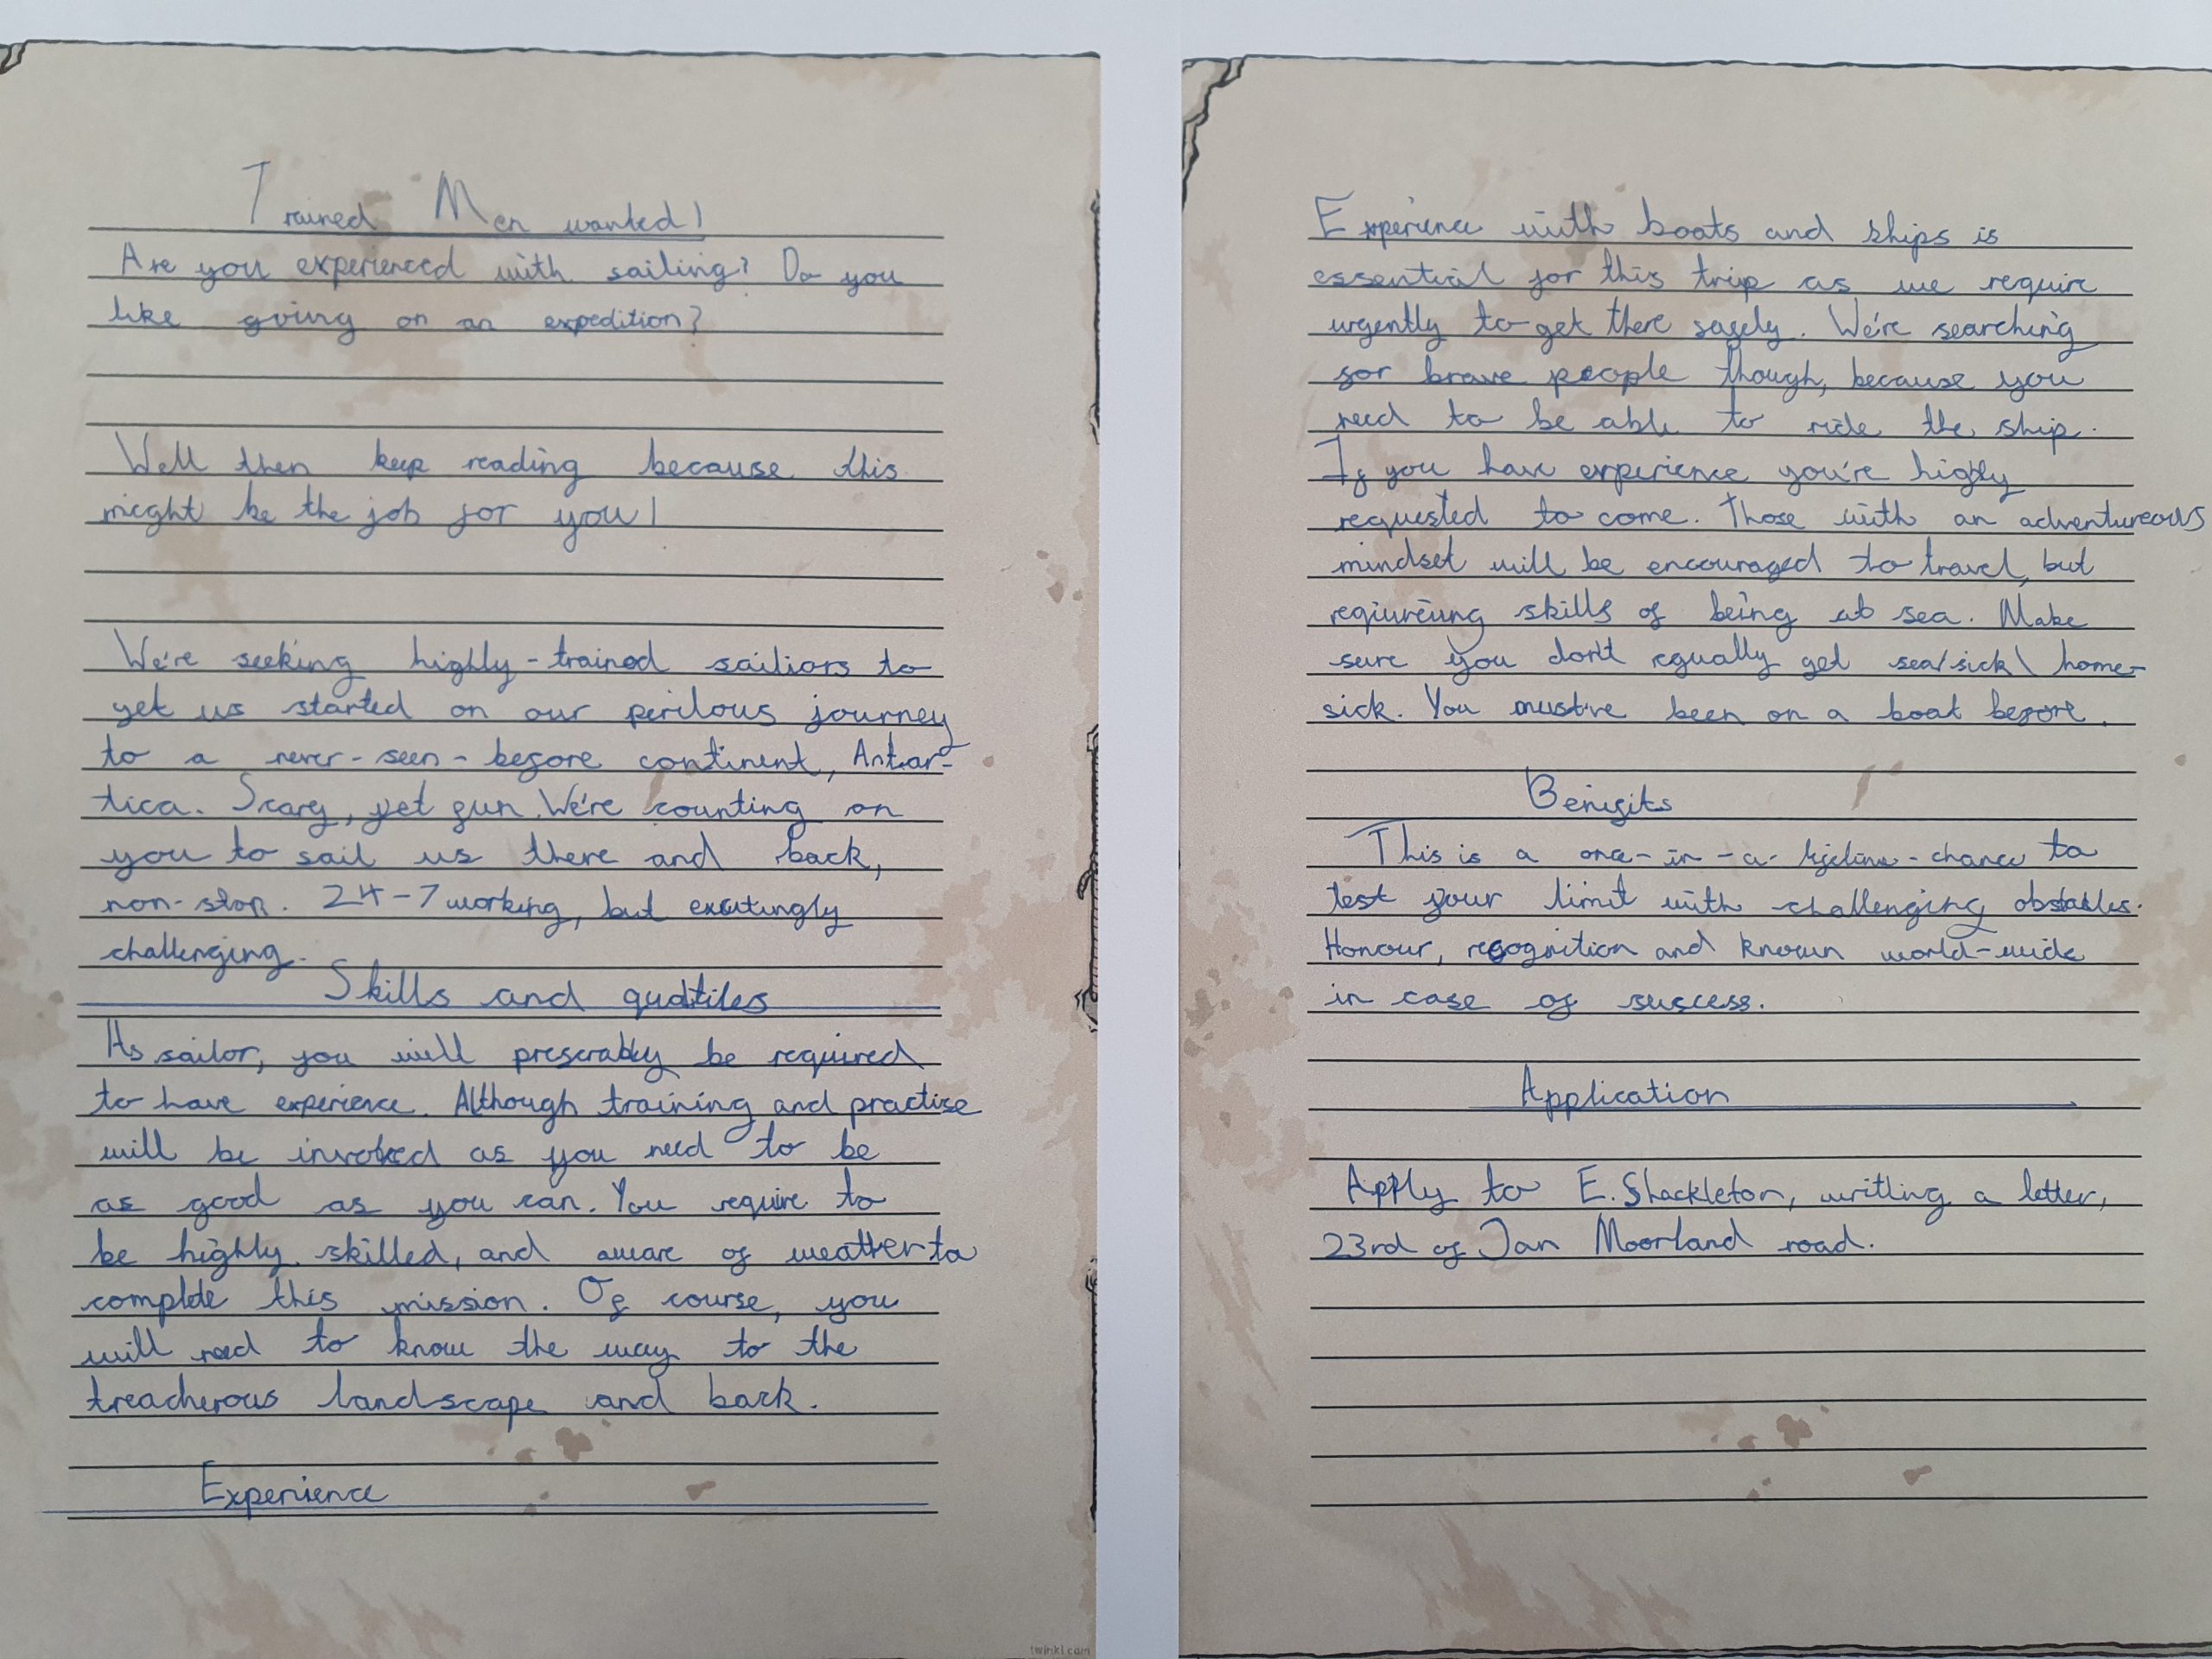 Trained Men wanted!
Are you experienced with sailing? Do you
like going on an expedition?
Well then keep reading because this
might be the job for you!
We're seeking highly-trained sailiors to
get us started on our perilous journey
to a never-seen-before continent, Antar-
tica. Scary, yet fun. We're counting on
you to sail us there and back,
non-stop. 24-7 working, but excitingly
challenging.
Skills and qualtiles
As sailor, you will preferably be required
to have experience. Although training and practise
will be invoked as you need to be
as good as you can. You require to
be highly skilled, and aware of weather to
complete this mission. Of course, you
will need to know the way to the
treacherous landscape and back.
Experience
twinkl.com
Experience with boats and ships is
essential for this trip as we require
urgently to get there safely. We're searching
for brave people though, because you
need to be able to ride the ship.
If you have experience you're highly
requested to come. Those with an adventureous
mindset will be encouraged to travel, but
reqiureiung skills of being at sea. Make
sure you don't equally get sea/sick\ home-
sick. You must've been on a boat before.
Benifits
This is a once-in-a-lifetime-chance to
test your limit with challenging obstacles.
Honour, recognition and known world-wide
in case of suscess.
Application
Apply to E. Shackleton, writling a letter,
23rd of Jan Moorland road.